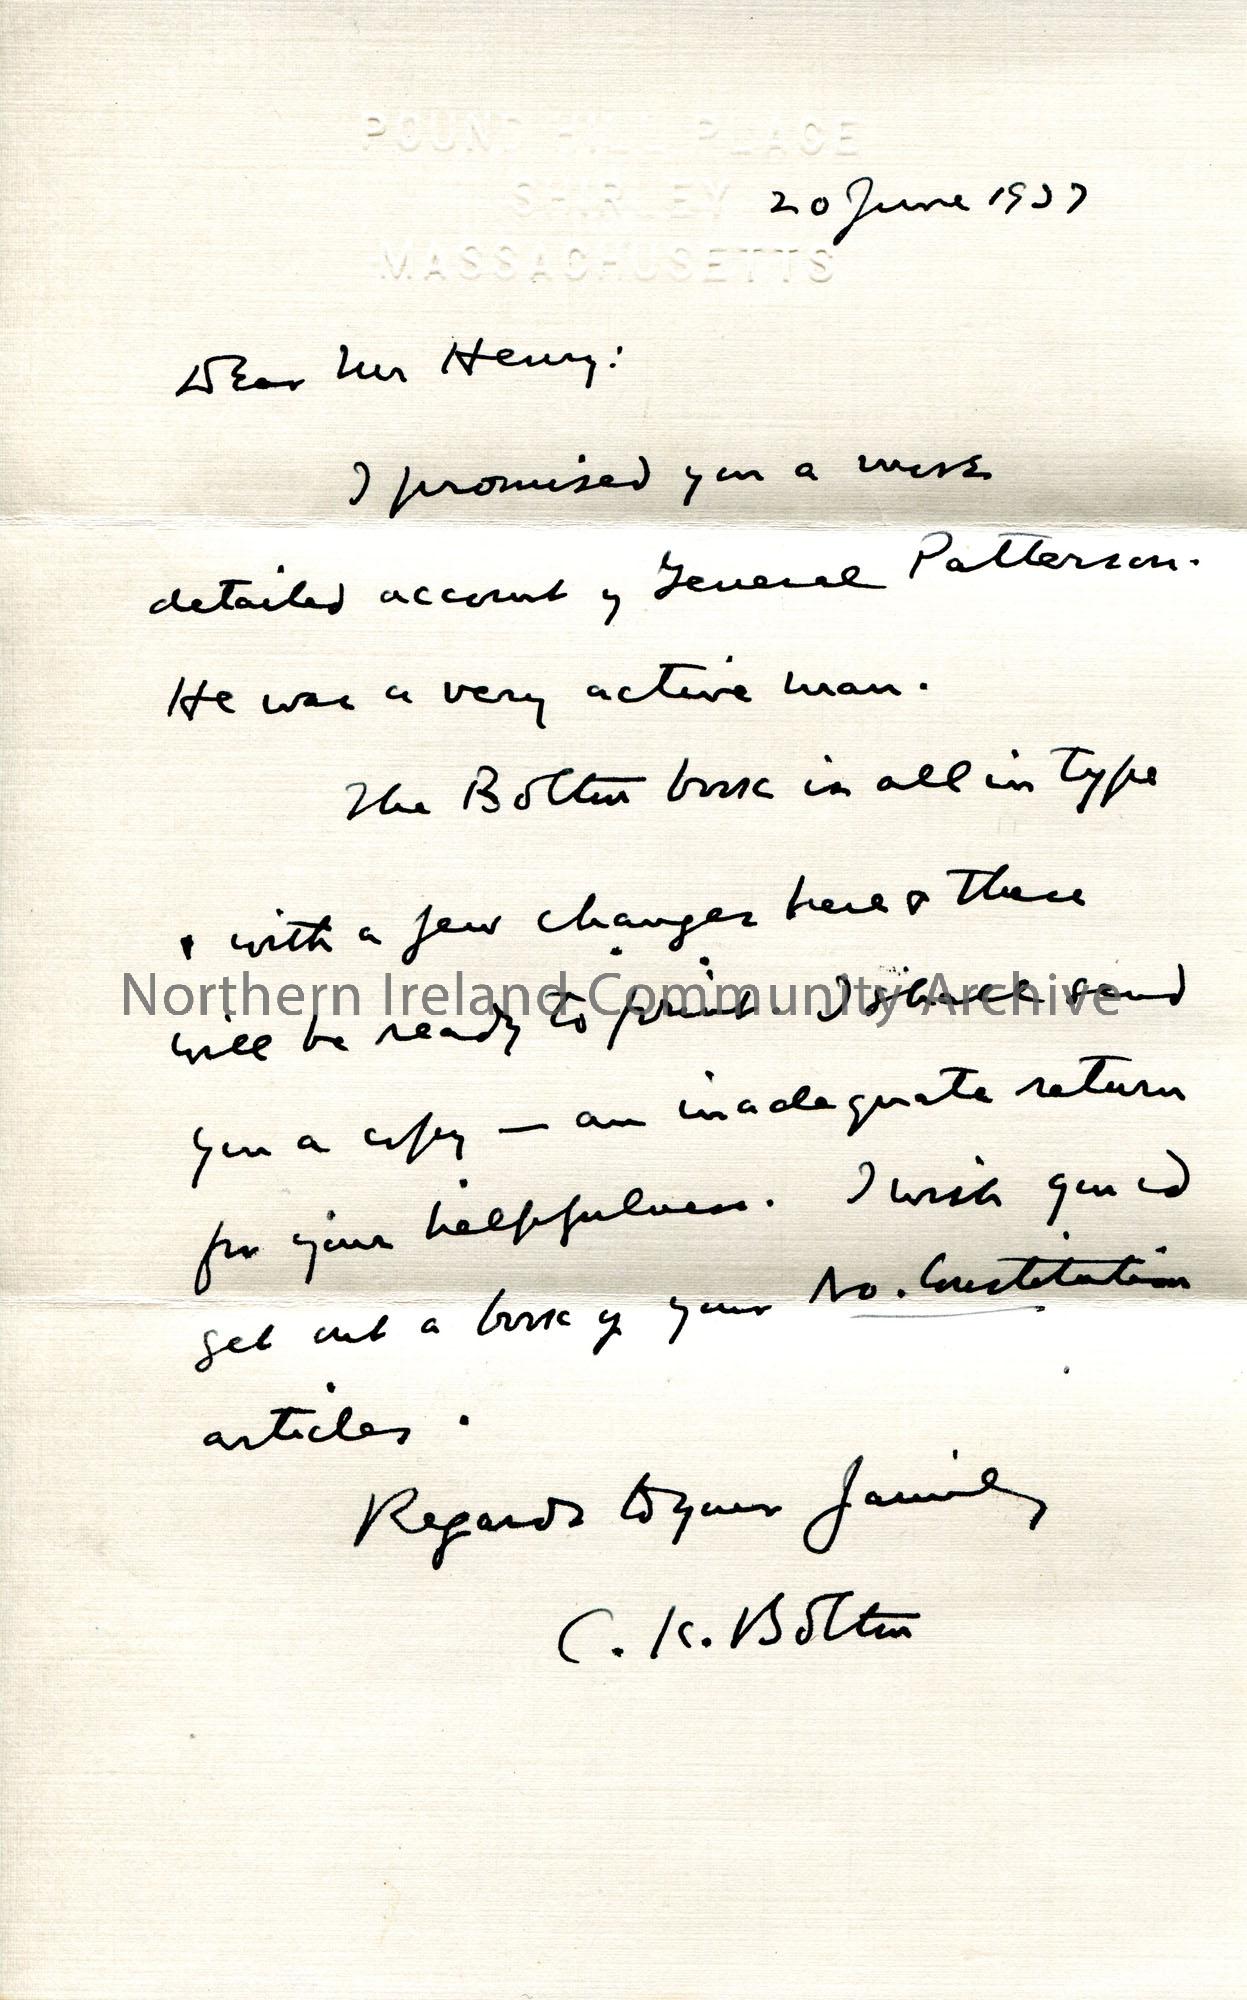 POUND HILL PLACE
SHIRLEY
MASSACHUSETTS
20 June 1937
Dear Mr Henry:
I promised you a more
detailed account of General Patterson.
He was a very active man.
The Bolton book is all in type
& with a few changes here & there
will be ready to print. I shall send
you a copy — an inadequate return
for your helpfulness. I wish you'd
get out a book of your No. Constitution
articles.
Regards to your family
C. K. Bolton
Northern Ireland Community Archive